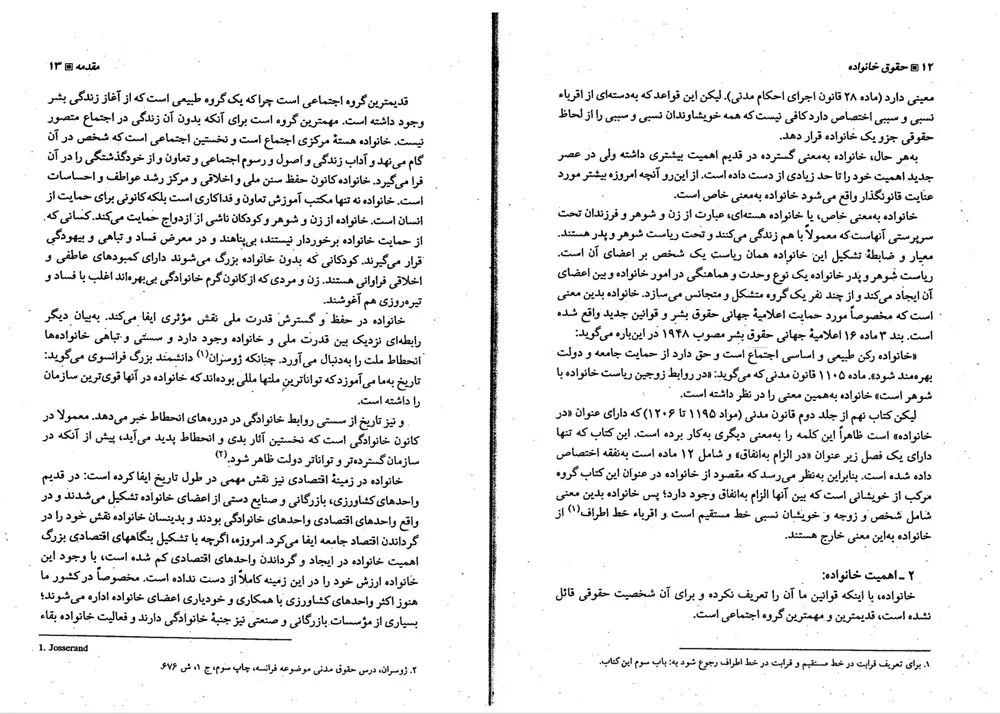 ۱۲ ▣ حقوق خانواده
معینی دارد (ماده ۲۸ قانون اجرای احکام مدنی). لیکن این قواعد که به‌دسته‌ای از اقرباء
نسبی و سببی اختصاص دارد کافی نیست که همه خویشاوندان نسبی و سببی را از لحاظ
حقوقی جزو یک خانواده قرار دهد.
به‌هر حال، خانواده به‌معنی گسترده در قدیم اهمیت بیشتری داشته ولی در عصر
جدید اهمیت خود را تا حد زیادی از دست داده است. از این‌رو آنچه امروزه بیشتر مورد
عنایت قانونگذار واقع می‌شود خانواده به‌معنی خاص است.
خانواده به‌معنی خاص، یا خانواده هسته‌ای، عبارت از زن و شوهر و فرزندان تحت
سرپرستی آنهاست که معمولاً با هم زندگی می‌کنند و تحت ریاست شوهر و پدر هستند.
معیار و ضابطهٔ تشکیل این خانواده همان ریاست یک شخص بر اعضای آن است.
ریاست شوهر و پدر خانواده یک نوع وحدت و هماهنگی در امور خانواده و بین اعضای
آن ایجاد می‌کند و از چند نفر یک گروه متشکل و متجانس می‌سازد. خانواده بدین معنی
است که مخصوصاً مورد حمایت اعلامیهٔ جهانی حقوق بشر و قوانین جدید واقع شده
است. بند ۳ ماده ۱۶ اعلامیهٔ جهانی حقوق بشر مصوب ۱۹۴۸ در این‌باره می‌گوید:
«خانواده رکن طبیعی و اساسی اجتماع است و حق دارد از حمایت جامعه و دولت
بهره‌مند شود». ماده ۱۱۰۵ قانون مدنی که می‌گوید: «در روابط زوجین ریاست خانواده با
شوهر است» خانواده به‌همین معنی را در نظر داشته است.
لیکن کتاب نهم از جلد دوم قانون مدنی (مواد ۱۱۹۵ تا ۱۲۰۶) که دارای عنوان «در
خانواده» است ظاهراً این کلمه را به‌معنی دیگری به‌کار برده است. این کتاب که تنها
دارای یک فصل زیر عنوان «در الزام به‌انفاق» و شامل ۱۲ ماده است به‌نفقه اختصاص
داده شده است. بنابراین به‌نظر می‌رسد که مقصود از خانواده در عنوان این کتاب گروه
مرکب از خویشانی است که بین آنها الزام به‌انفاق وجود دارد؛ پس خانواده بدین معنی
شامل شخص و زوجه و خویشان نسبی خط مستقیم است و اقرباء خط اطراف(۱) از
خانواده به‌این معنی خارج هستند.
۲ ـ اهمیت خانواده:
خانواده، با اینکه قوانین ما آن را تعریف نکرده و برای آن شخصیت حقوقی قائل
نشده است، قدیمترین و مهمترین گروه اجتماعی است.
۱. برای تعریف قرابت در خط مستقیم و قرابت در خط اطراف رجوع شود به: باب سوم این کتاب.
مقدمه ▣ ۱۳
قدیمترین گروه اجتماعی است چرا که یک گروه طبیعی است که از آغاز زندگی بشر
وجود داشته است. مهمترین گروه است برای آنکه بدون آن زندگی در اجتماع متصور
نیست. خانواده هستهٔ مرکزی اجتماع است و نخستین اجتماعی است که شخص در آن
گام می‌نهد و آداب زندگی و اصول و رسوم اجتماعی و تعاون و از خودگذشتگی را در آن
فرا می‌گیرد. خانواده کانون حفظ سنن ملی و اخلاقی و مرکز رشد عواطف و احساسات
است. خانواده نه تنها مکتب آموزش تعاون و فداکاری است بلکه کانونی برای حمایت از
انسان است. خانواده از زن و شوهر و کودکان ناشی از ازدواج حمایت می‌کند. کسانی که
از حمایت خانواده برخوردار نیستند، بی‌پناهند و در معرض فساد و تباهی و بیهودگی
قرار می‌گیرند. کودکانی که بدون خانواده بزرگ می‌شوند دارای کمبودهای عاطفی و
اخلاقی فراوانی هستند. زن و مردی که از کانون گرم خانوادگی بی‌بهره‌اند اغلب با فساد و
تیره‌روزی هم آغوشند.
خانواده در حفظ و گسترش قدرت ملی نقش مؤثری ایفا می‌کند. به‌بیان دیگر
رابطه‌ای نزدیک بین قدرت ملی و خانواده وجود دارد و سستی و تباهی خانواده‌ها
انحطاط ملت را به‌دنبال می‌آورد. چنانکه ژوسران(۱) دانشمند بزرگ فرانسوی می‌گوید:
تاریخ به‌ما می‌آموزد که تواناترین ملتها مللی بوده‌اند که خانواده در آنها قوی‌ترین سازمان
را داشته است.
و نیز تاریخ از سستی روابط خانوادگی در دوره‌های انحطاط خبر می‌دهد. معمولا در
کانون خانوادگی است که نخستین آثار بدی و انحطاط پدید می‌آید، پیش از آنکه در
سازمان گسترده‌تر و تواناتر دولت ظاهر شود.(۲)
خانواده در زمینهٔ اقتصادی نیز نقش مهمی در طول تاریخ ایفا کرده است: در قدیم
واحدهای کشاورزی، بازرگانی و صنایع دستی از اعضای خانواده تشکیل می‌شدند و در
واقع واحدهای اقتصادی واحدهای خانوادگی بودند و بدینسان خانواده نقش خود را در
گرداندن اقتصاد جامعه ایفا می‌کرد. امروزه، اگرچه با تشکیل بنگاههای اقتصادی بزرگ
اهمیت خانواده در ایجاد و گرداندن واحدهای اقتصادی کم شده است، با وجود این
خانواده ارزش خود را در این زمینه کاملاً از دست نداده است. مخصوصاً در کشور ما
هنوز اکثر واحدهای کشاورزی با همکاری و خودیاری اعضای خانواده اداره می‌شوند؛
بسیاری از مؤسسات بازرگانی و صنعتی نیز جنبهٔ خانوادگی دارند و فعالیت خانواده بقاء
1. Josserand
۲. ژوسران، درس حقوق مدنی موضوعه فرانسه، چاپ سوم، ج ۱، ش ۶۷۶.